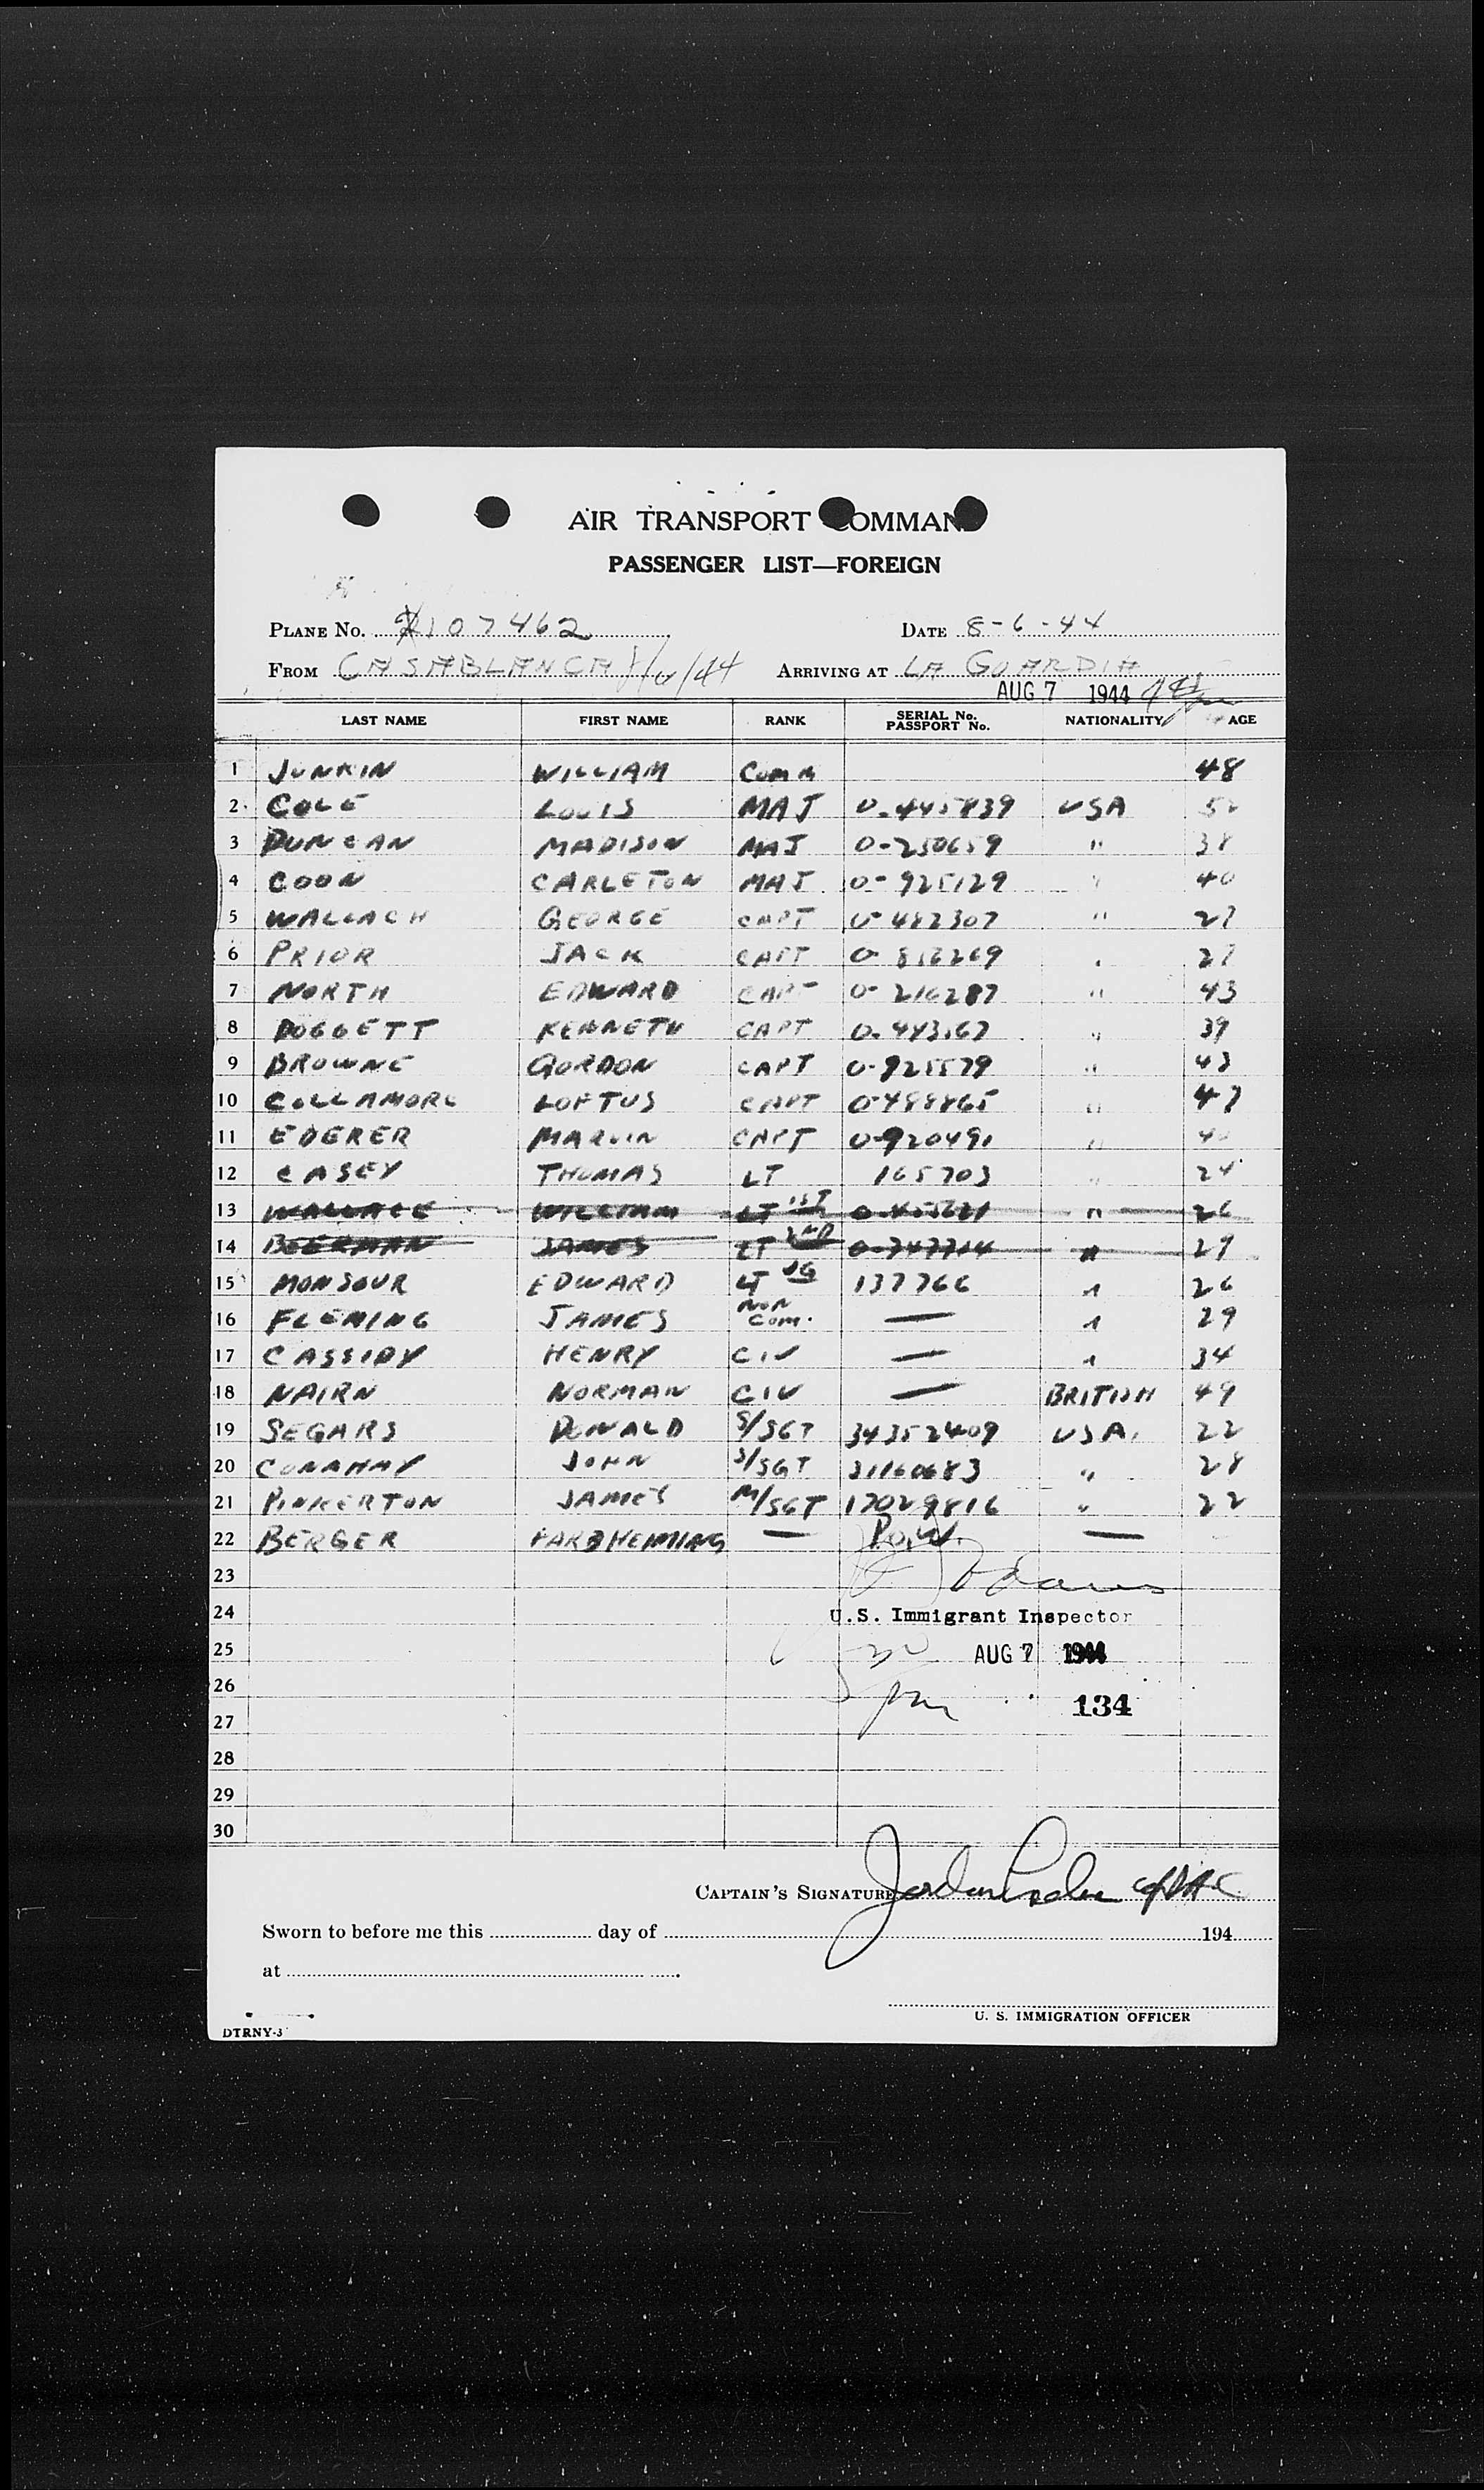 AIR TRANSPORT COMMAND
PASSENGER LIST—FOREIGN
PLANE NO. 107462 DATE 8-6-44
FROM CASABLANCA ARRIVING AT LA GUARDIA
AUG 7 1944
LAST NAME FIRST NAME RANK SERIAL No. PASSPORT No. NATIONALITY AGE
1 JUNKIN WILLIAM COMM 48
2 COLE LOUIS MAJ 0-445839 USA
3 DUNCAN MADISON MAJ 0-250659 " 38
4 COON CARLETON MAJ 0-925129 " 40
5 WALLACH GEORGE CAPT 0-482307 " 27
6 PRIOR JACK CAPT 27
7 NORTH EDWARD CAPT 0-216287 " 43
8 DOGGETT KENNETH CAPT " 39
9 BROWNE GORDON CAPT 0-925579 " 43
10 COLLAMORE LOFTUS CAPT 0-498865 " 47
11 EDERER MARVIN CAPT 0-920491 "
12 CASEY THOMAS LT 165703 " 24
13 WALLACE WILLIAM LT 1ST " 26
14 BEERMAN JAMES LT 2ND 0-747714 " 29
15 MONSOUR EDWARD LT JG 137766 " 26
16 FLEMING JAMES NON COM. — " 29
17 CASSIDY HENRY CIV — " 34
18 NAIRN NORMAN CIV — BRITISH 49
19 SEGARS DONALD S/SGT 34352409 USA. 22
20 CONAHAY JOHN S/SGT 31160683 " 28
21 PINKERTON JAMES M/SGT 17029816 " 22
22 BERGER — P.O.W. —
23
24 U.S. Immigrant Inspector
25 AUG 7 1944
26 134
27
28
29
30
CAPTAIN'S SIGNATURE
Sworn to before me this day of 194
at
U. S. IMMIGRATION OFFICER
DTRNY-3